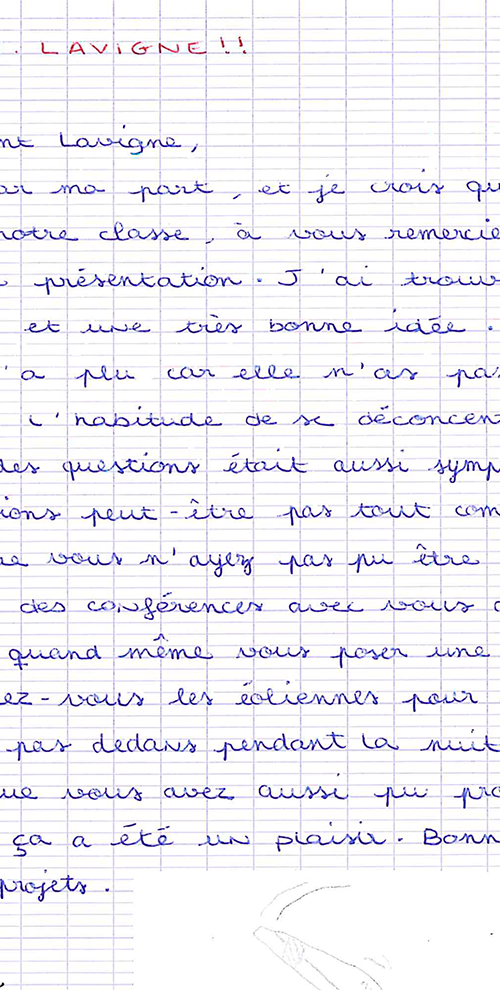 . LAVIGNE!!
nt Lavigne,
ar ma part, et je crois qu
notre classe, à vous remercie
présentation. J'ai trouv
et une très bonne idée.
'a plu car elle n'as pas
l'habitude de se déconcent
des questions était aussi symp
ions peut-être pas tout com
ue vous n'ayez pas pu être
des conférences avec vous
quand même vous poser une
ez-vous les éoliennes pour
pas dedans pendant la nuit
ue vous avez aussi pu pro
ça a été un plaisir. Bonn
projets.